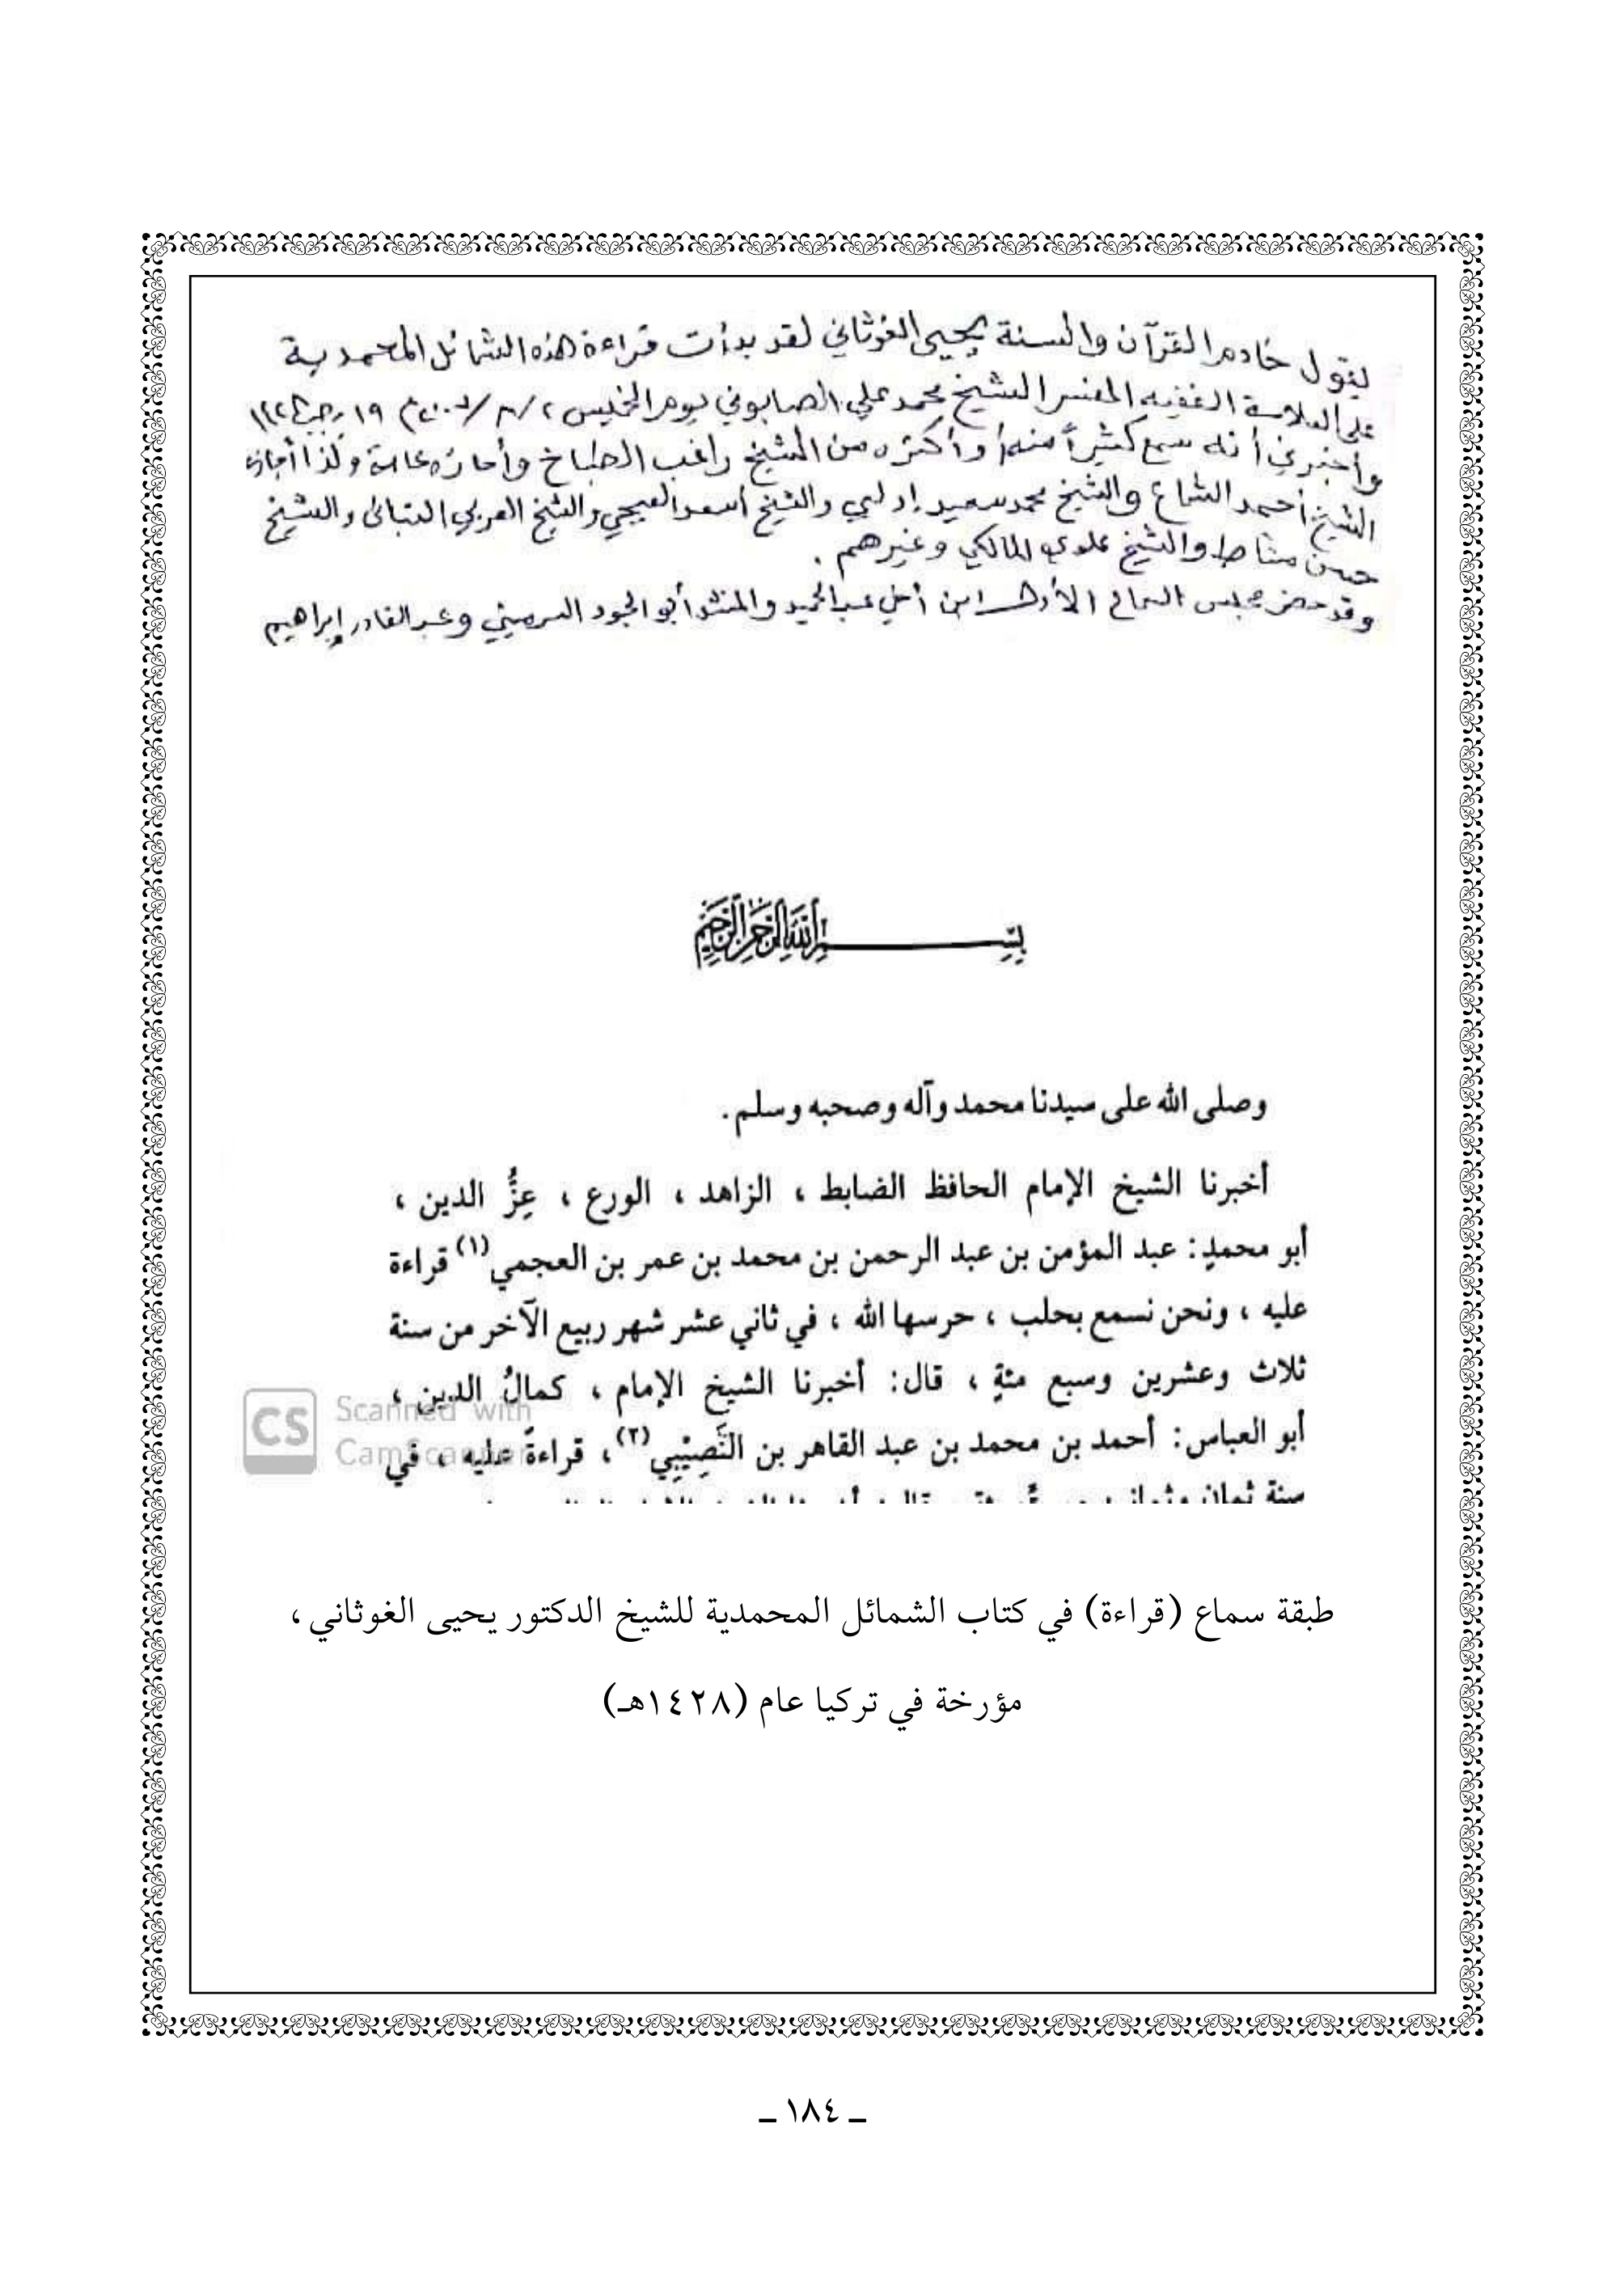 يقول خادم القرآن والسنة يحيى الغوثاني لقد بدأت قراءة هذه الشمائل المحمدية
على العلامة الفقيه المفسر الشيخ محمد علي الصابوني يوم الخميس ٢/٨/٢٠٠٧م ١٩ رجب
وأخبرني أنه سمع كثيراً منها وأكثره من الشيخ راغب الطباخ وأجازه عامة وكذا أجازه
الشيخ أحمد الشماع والشيخ محمد سعيد إدلبي والشيخ أسعد العبجي والشيخ العربي التباني والشيخ
حسن مشاط والشيخ علوي المالكي وغيرهم .
وقد حضر مجلس السماع الأول ابن أخي عبد الحميد والمنشد أبو الجود السرميني وعبد القادر إبراهيم
بسم الله الرحمن الرحيم
وصلى الله على سيدنا محمد وآله وصحبه وسلم.
أخبرنا الشيخ الإمام الحافظ الضابط ، الزاهد ، الورع ، عِزُّ الدين ،
أبو محمدٍ: عبد المؤمن بن عبد الرحمن بن محمد بن عمر بن العجمي(١) قراءة
عليه ، ونحن نسمع بحلب ، حرسها الله ، في ثاني عشر شهر ربيع الآخر من سنة
ثلاث وعشرين وسبع مئةٍ ، قال: أخبرنا الشيخ الإمام ، كمالُ الدين ،
أبو العباس: أحمد بن محمد بن عبد القاهر بن النَّصِيْبِي(٢)، قراءةً عليه ، في
سنة ثمان
CS Scanned with
CamScanner
طبقة سماع (قراءة) في كتاب الشمائل المحمدية للشيخ الدكتور يحيى الغوثاني ،
مؤرخة في تركيا عام (١٤٢٨هـ)
ـ ١٨٤ ـ